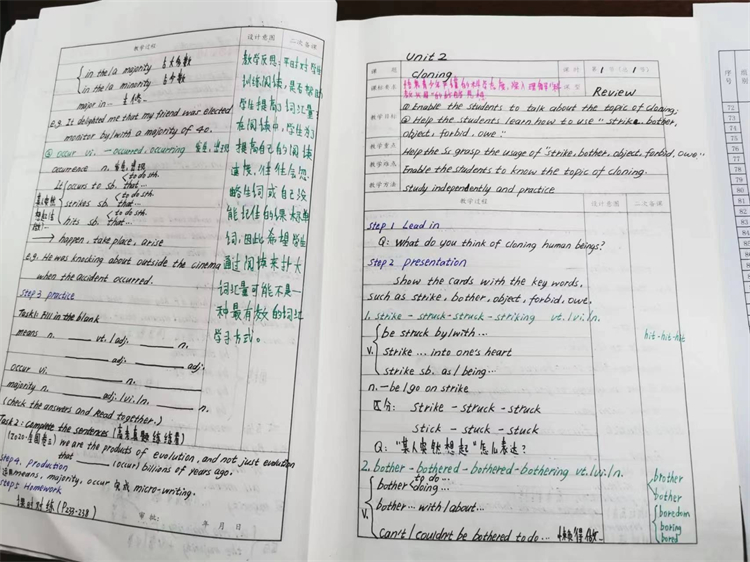 教学过程 设计意图 二次备课
in the/a majority 占大多数
in the/a minority 占少数
major in... 主修...
e.g. It delighted me that my friend was elected
monitor by/with a majority of 40.
② occur vi. — occurred, occurring 发生, 出现
ocurrence n. 发生, 出现
It occurs to sb. that... to do sth.
strikes sb. that... to do sth.
hits sb. that... to do sth.
→ happen, take place, arise
e.g. He was knocking about outside the cinema
when the accident occurred.
Step 3 practice
Task1: Fill in the blank
means n. vt. / adj. n.
adj. adj.
occur vi. n.
majority n. adj. / vi. / n. n.
(check the answers and Read together.)
Task 2: Complete the sentences (高考真题练练看)
(2020·全国卷Ⅱ) we are the products of evolution, and not just evolution
that (occur) billions of years ago.
Step 4. production
运用means, majority, occur 完成 micro-writing.
Step 5 Homework
课时对练 (P233-238)
审批: 年 月 日
教学反思: 平时对学生
训练阅读, 是有效的
学生提高了词汇量
在阅读中, 学生为了
提高自己的阅读
速度, 往往会忽
略生词或自己没
能记住的课标单
词, 因此希望学生
通过阅读来扩大
词汇量可能不是一
种最有效的词汇
学习方式。
Unit 2
课题 Cloning 课时 第 1 节 (共 1 节)
课标要求 课型 Review
教学目标 ① Enable the students to talk about the topic of cloning;
② Help the students learn how to use "strike, bother,
object, forbid, owe."
教学重点 Help the Ss grasp the usage of "strike, bother, object, forbid, owe"
教学难点 Enable the students to know the topic of cloning.
教学方法 study independently and practice
教学过程 设计意图 二次备课
Step 1 Lead in
Q: What do you think of cloning human beings?
Step 2 presentation
Show the cards with the key words,
such as strike, bother, object, forbid, owe.
1. strike - struck - struck - striking vt. / vi. / n.
be struck by/with...
v. strike ... into one's heart
strike sb. as / being...
n. - be / go on strike
区分: strike - struck - struck
stick - stuck - stuck
Q: "某人突然想起" 怎么表达?
2. bother - bothered - bothered - bothering vt. / vi. / n.
bother to do... doing...
v. bother... with/about...
can't / couldn't be bothered to do... 懒得做...
hit - hit - hit
brother
bother
boredom
boring
bored
序号
72
73
74
75
76
77
78
79
80
81
82
83
84
85